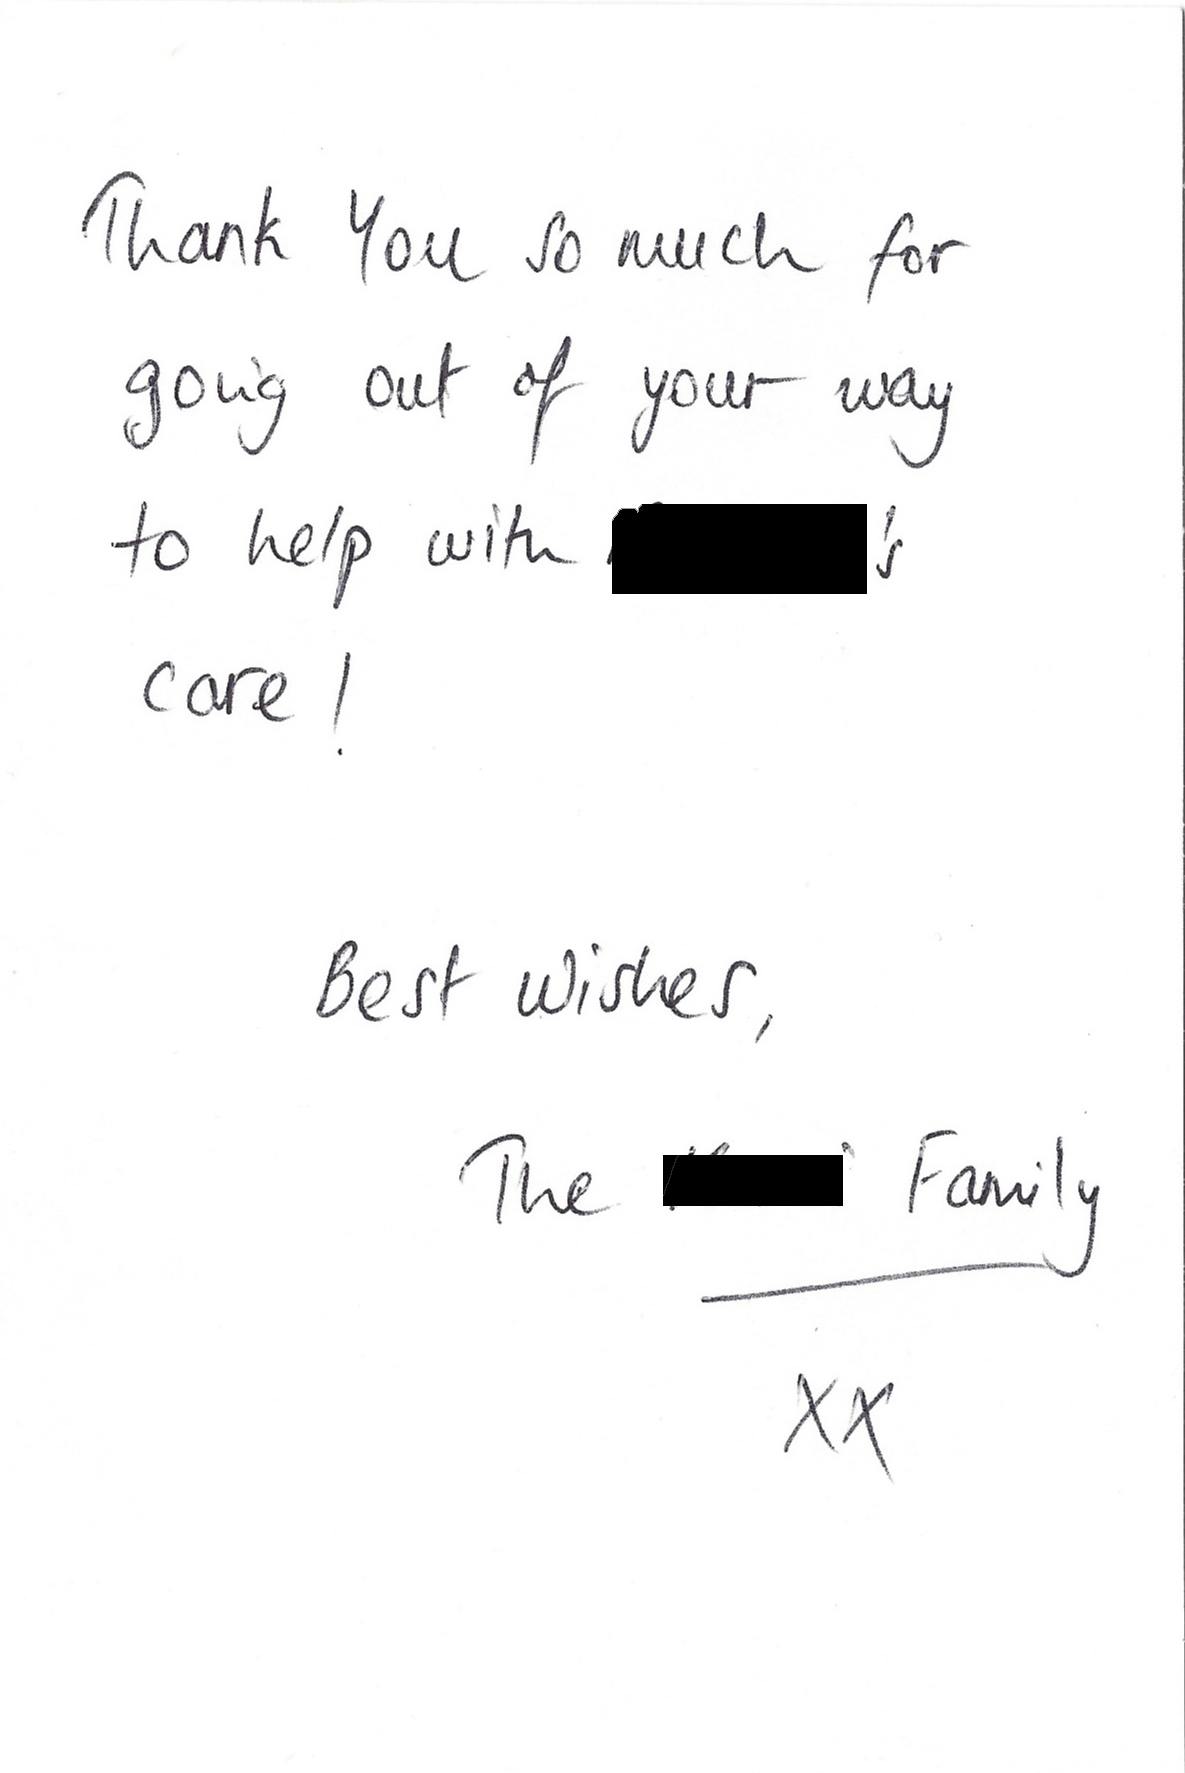 Thank You so much for
going out of your way
to help with 's
care!
Best Wishes,
The Family
XX